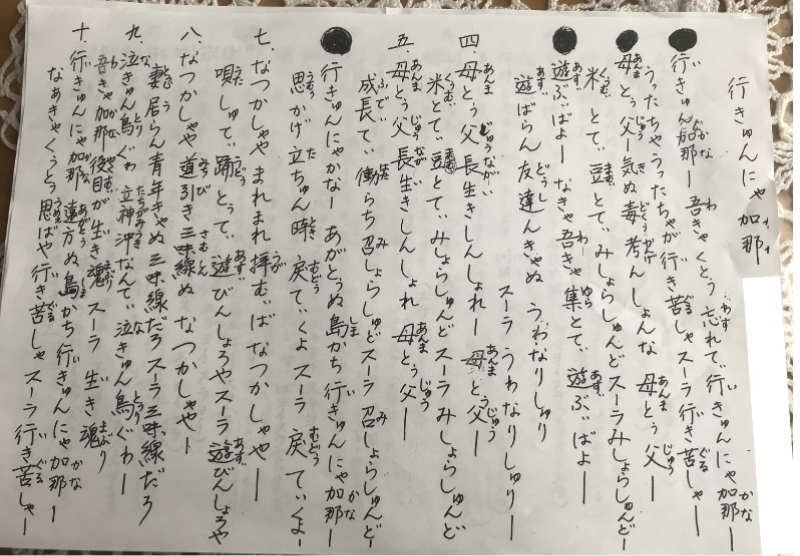 行きゅんにゃ加那
行きゅん加那ー 吾きゃくとぅ 忘れてぃ 行きゅんにゃ加那ー
うったちゃ うったちゃが 行き苦しゃ スーラ 行き苦しゃー
母とぅ父ー 気ぬ毒 考んしょんな 母とぅ父ー
米とてぃ 豆とてぃ みしょらしゅんど スーラ みしょらしゅんどー
遊ぶばよー なきゃ吾きゃ 集とてぃ 遊ぶばよー
遊ばらん 友達んきゃぬ うわなりしゅり
スーラ うわなりしゅりー
四、母とぅ父 長生きしんしょれー 母とぅ父ー
米とてぃ 豆とてぃ みしょらしゅんど スーラ みしょらしゅんど
五、母とぅ父 長生きしんしょれ 母とぅ父ー
成長てぃ 働らち 召しょらしゅど スーラ 召しょらしゅんどー
行きゅんにゃかなー あがとぅぬ 島かち 行きゅんにゃ加那ー
思かげ 立ちゅん時 戻てぃくよ スーラ 戻てぃくよー
七、なつかしゃや まれまれ 拝むばなつかしゃやー
唄しゅてぃ 踊とてぃ 遊びんしょろや スーラ 遊びんしょろや
八、なつかしゃや 道引き 三味線ぬ なつかしゃやー
妻居らん 青年きゃぬ 三味線だろ スーラ 三味線だろ
九、泣きゅん鳥ぐゎ 立神沖なんてぃ 泣きゅん鳥ぐゎー
吾きゃ加那 が 生き魂 スーラ 生き魂
十、行きゅんにゃ加那 遠方ぬ 島かち 行きゅんにゃ加那ー
なぁきゃくとぅ 思ばや 行き苦しゃ スーラ 行き苦しゃー